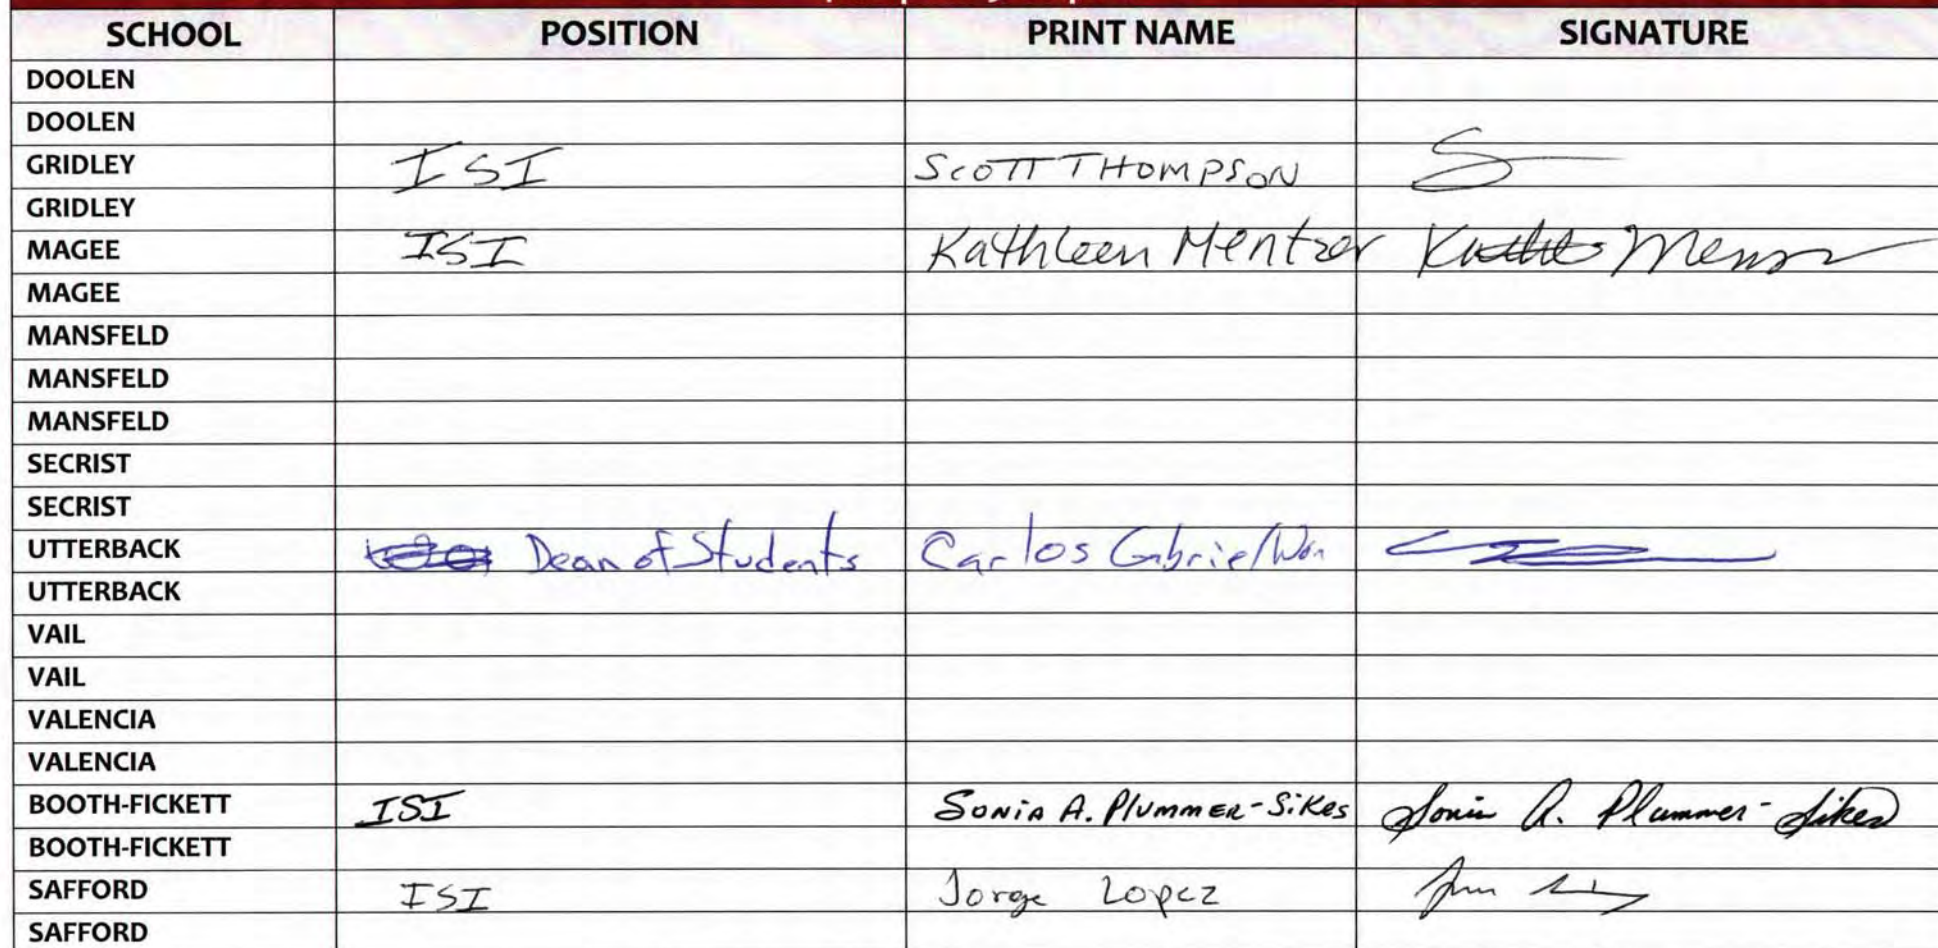 SCHOOL POSITION PRINT NAME SIGNATURE
DOOLEN
DOOLEN
GRIDLEY ISI SCOTT THOMPSON
GRIDLEY
MAGEE ISI Kathleen Mentzer
MAGEE
MANSFELD
MANSFELD
MANSFELD
SECRIST
SECRIST
UTTERBACK Dean of Students Carlos Gabriel
UTTERBACK
VAIL
VAIL
VALENCIA
VALENCIA
BOOTH-FICKETT ISI SONIA A. PLUMMER-SiKes Sonia A. Plummer-Sikes
BOOTH-FICKETT
SAFFORD ISI Jorge Lopez
SAFFORD